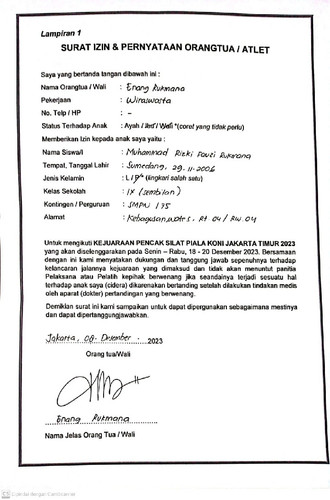 Lampiran 1
SURAT IZIN & PERNYATAAN ORANGTUA / ATLET
Saya yang bertanda tangan dibawah ini :
Nama Orangtua / Wali : Enang Rukmana
Pekerjaan : Wiraswasta
No. Telp / HP : -
Status Terhadap Anak : Ayah / Ibu / Wali *(coret yang tidak perlu)
Memberikan Izin kepada anak saya yaitu :
Nama Siswa/i : Muhammad Rizki Fauzi Rukmana
Tempat, Tanggal Lahir : Sumedang, 29-11-2006
Jenis Kelamin : L / P* (lingkari salah satu)
Kelas Sekolah : IX (sembilan)
Kontingen / Perguruan : SMPN 175
Alamat : RT.04 / RW.04
Untuk mengikuti KEJUARAAN PENCAK SILAT PIALA KONI JAKARTA TIMUR 2023
yang akan diselenggarakan pada Senin – Rabu, 18 - 20 Desember 2023. Bersamaan
dengan ini kami menyatakan dukungan dan tanggung jawab sepenuhnya terhadap
kelancaran jalannya kejuaraan yang dimaksud dan tidak akan menuntut panitia
Pelaksana atau Pelatih kepihak berwenang jika seandainya terjadi sesuatu hal
terhadap anak saya (cidera) dikarenakan bertanding setelah dilakukan tindakan medis
oleh aparat (dokter) pertandingan yang berwenang.
Demikian surat ini kami sampaikan untuk dapat dipergunakan sebagaimana mestinya
dan dapat dipertanggungjawabkan.
Jakarta, 08- Desember - 2023
Orang tua/Wali
Enang Rukmana
Nama Jelas Orang Tua / Wali